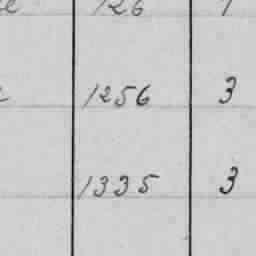 126 1
1256 3
1335 3